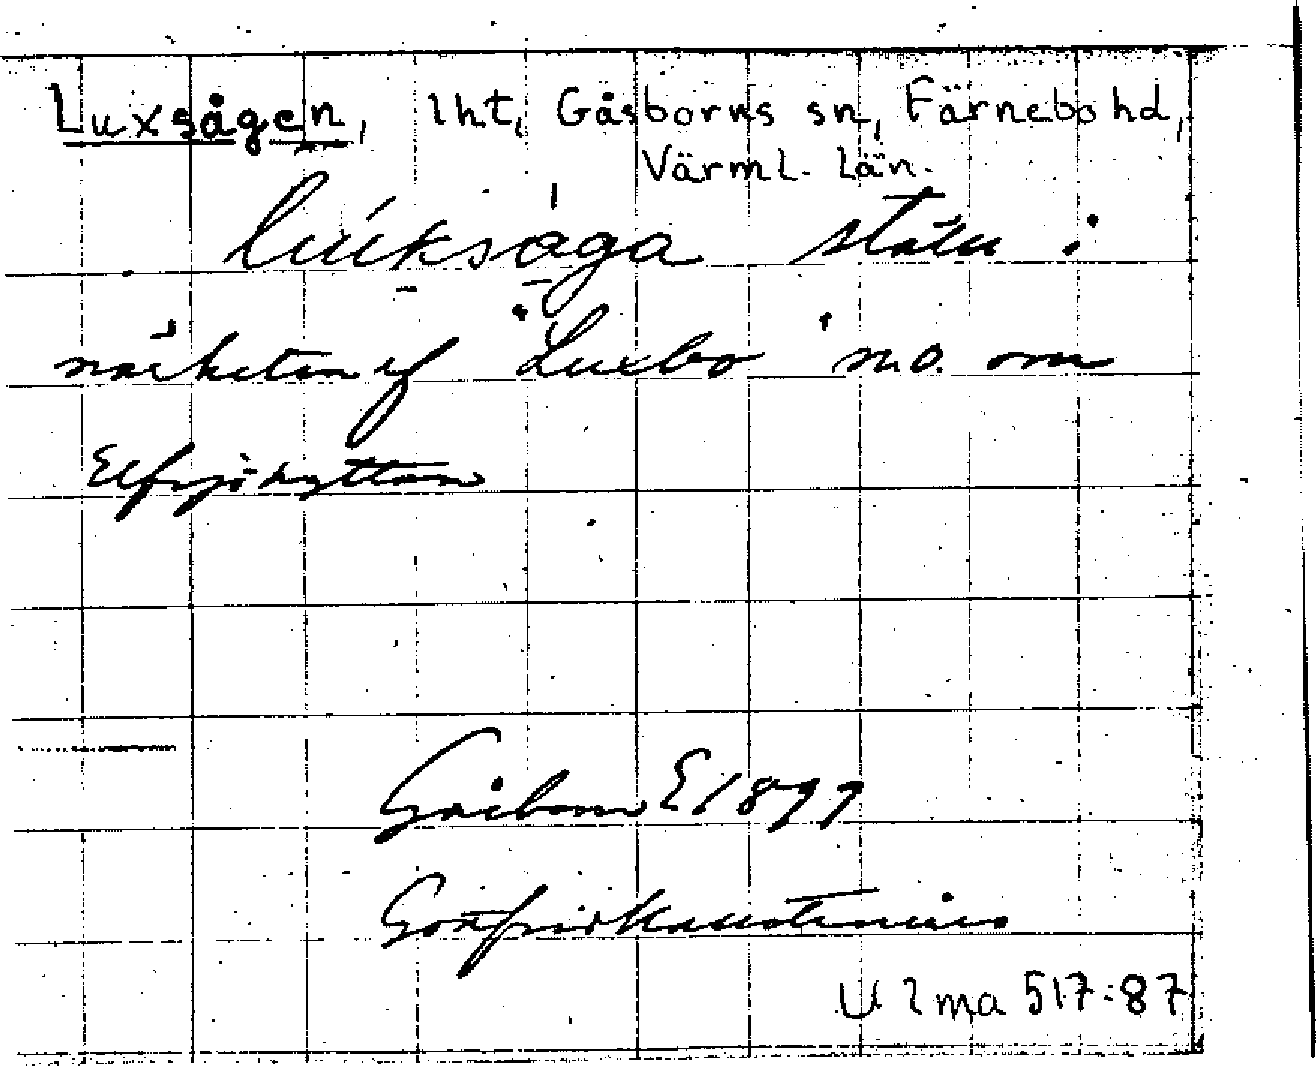 Luxsågen, lht, Gåsborns sn, Färnebo hd,
Värml. län.
lúksåga ställe i
närheten af "Luxbo" n.o. om
Elfsjöhyttan
Gåsborn E 1899
Gottfrid Kallstenius
U 2 ma 517:87